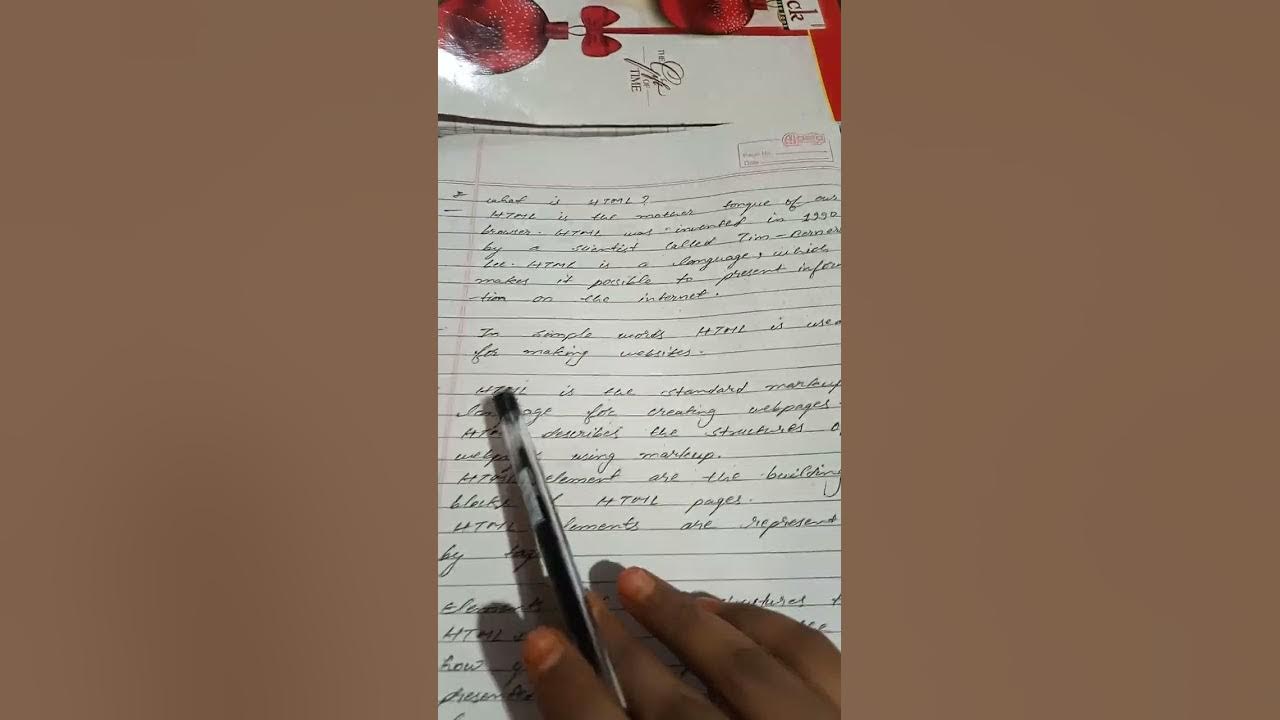 ck
THE
Gift
OF
TIME
Page No.
Date
what is HTML?
HTML is the mother tongue of our
browser. HTML was invented in 1990
by a scientist called Tim-Berner
Lee. HTML is a language, which
makes it possible to present infor
-tion on the internet.
In simple words HTML is used
for making websites.
HTML is the standard markup
language for creating webpages.
HTML describes the structures of
using markup.
HTML element are the building
blocks HTML pages.
HTML elements are represent
by
Elements structures
HTML
how